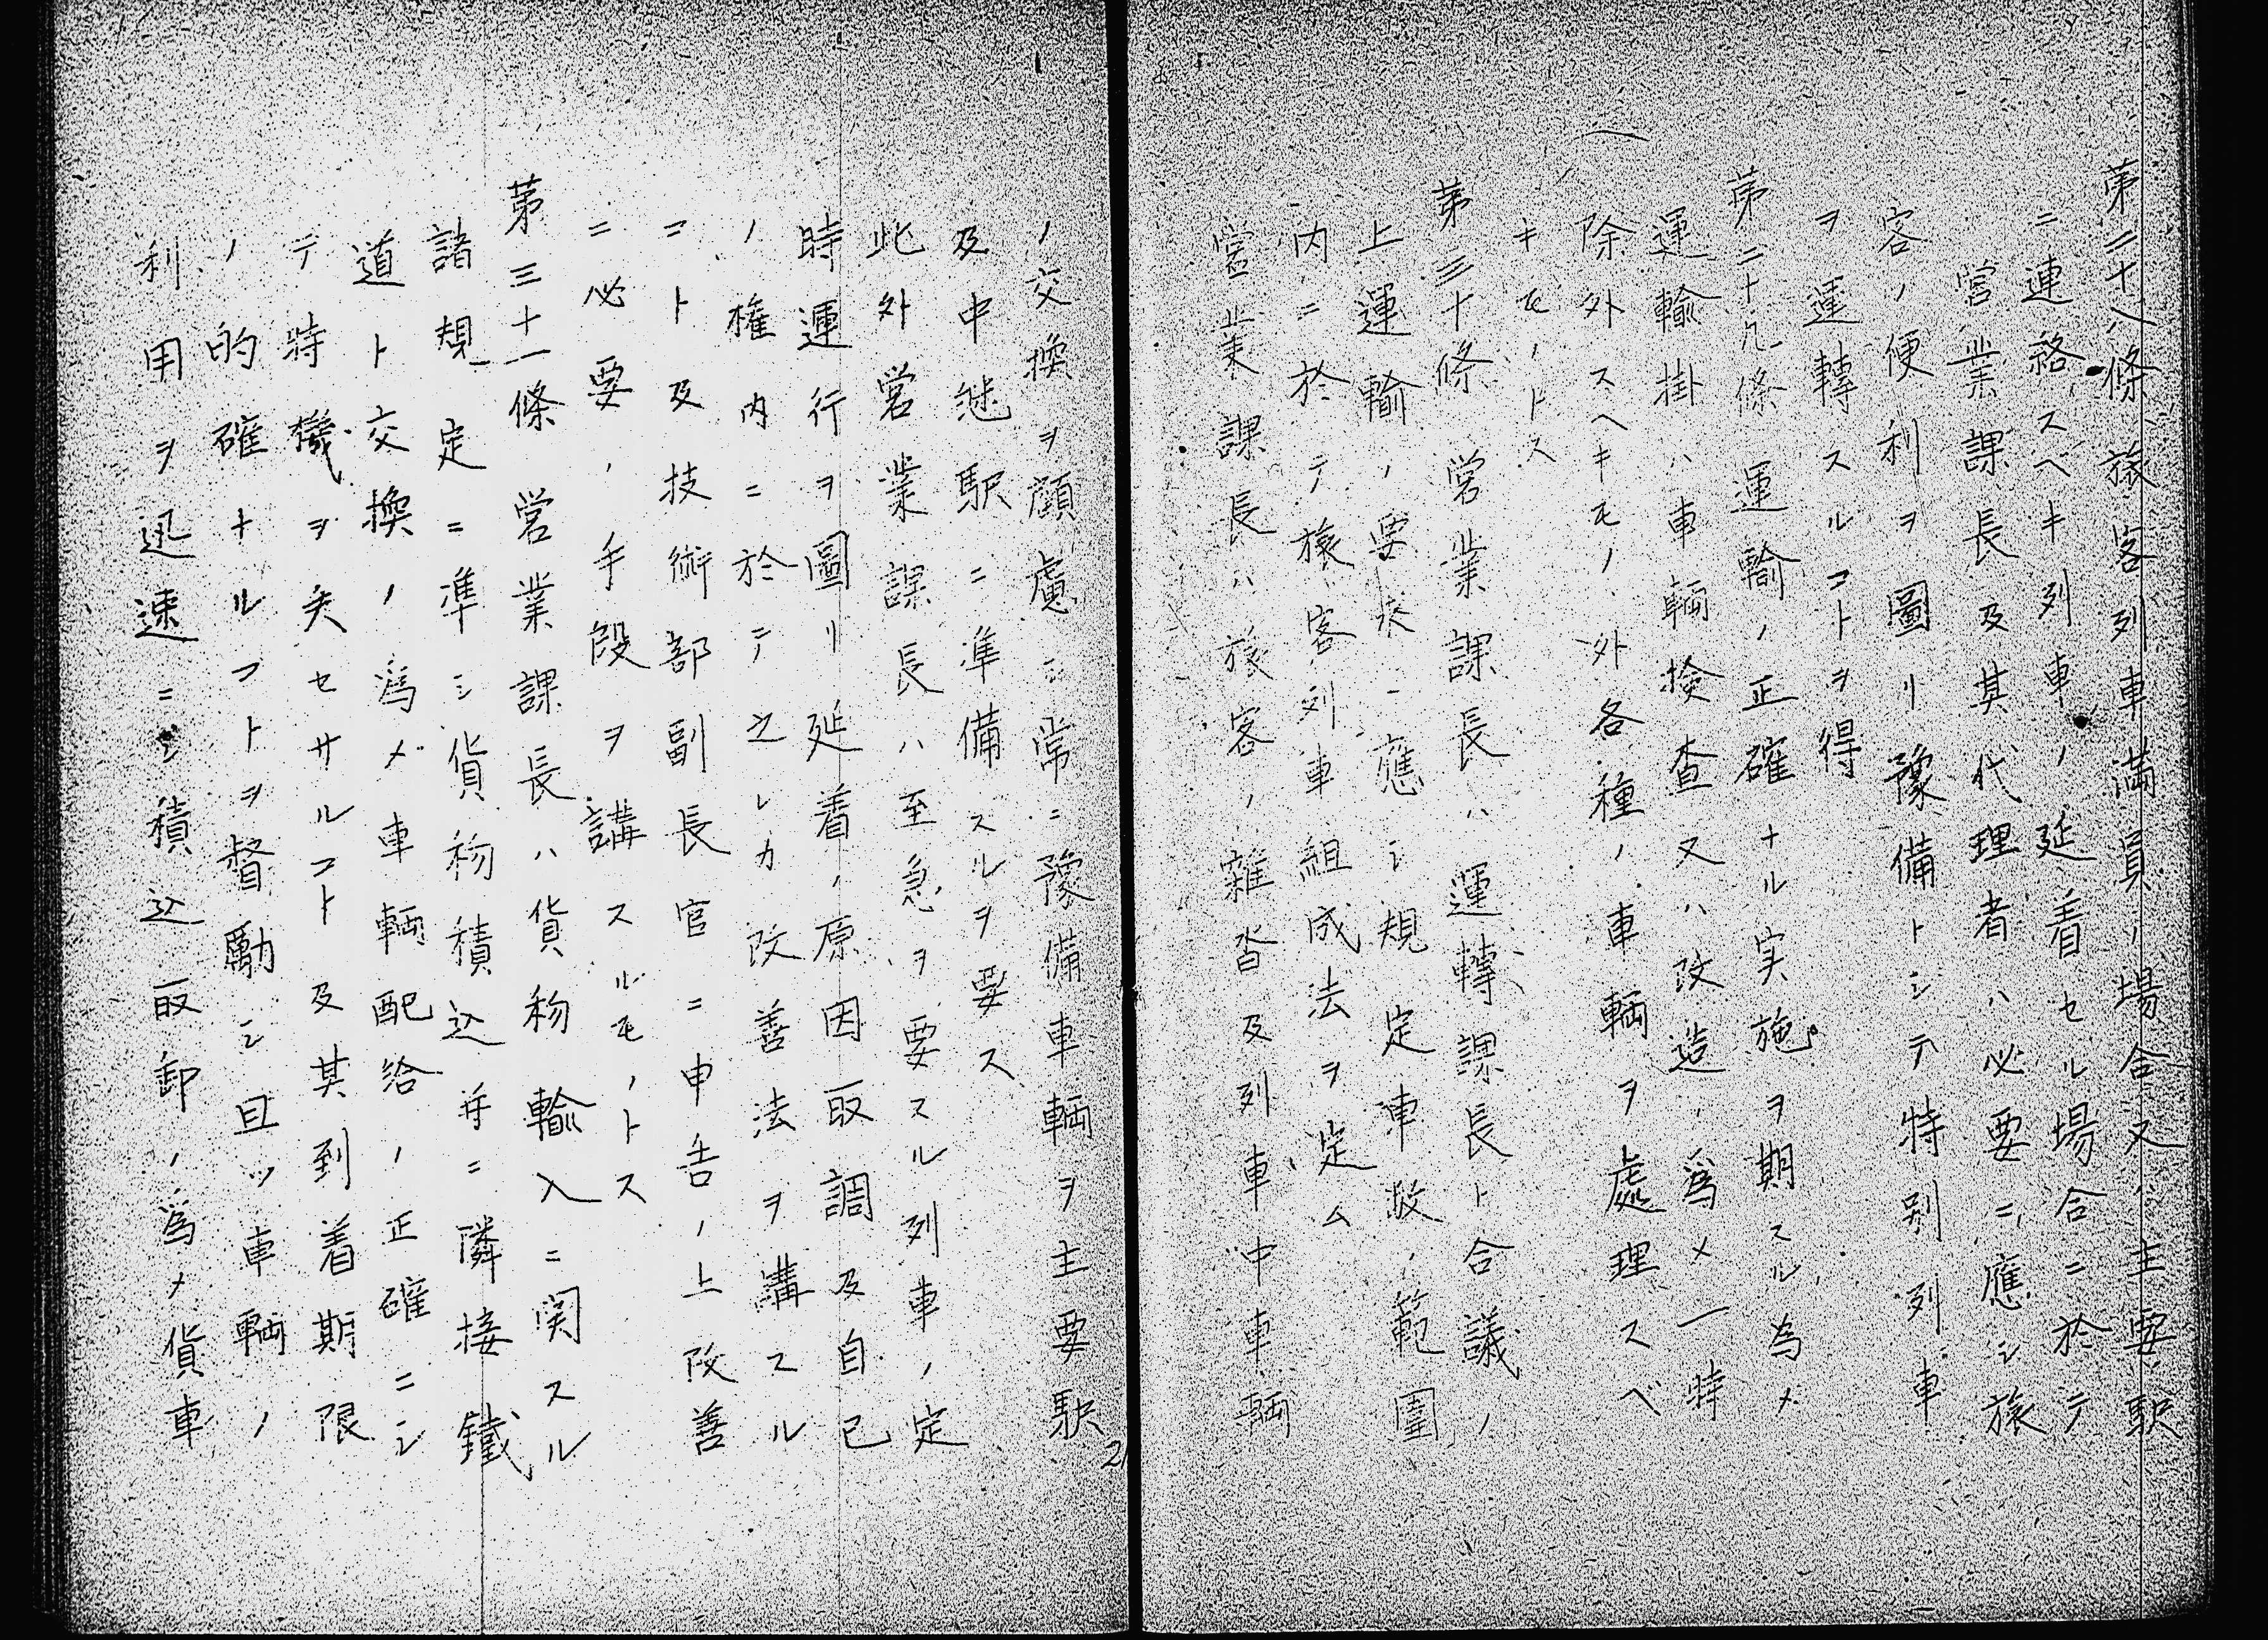 第二十八條、旅客列車満員ノ場合又ハ主要駅
ニ連絡スベキ列車ノ延着セル場合ニ於テ
営業課長及其代理者ハ必要ニ應シ旅
客ノ便利ヲ圖リ豫備トシテ特別列車
ヲ運轉スルコトヲ得
第二十九條 運輸ノ正確ナル実施ヲ期スル為メ
運輸掛ハ車輌検査又ハ改造ノ為メ一時
除外スヘキモノヽ外各種ノ車輌ヲ處理スベ
キモノトス
第三十條 営業課長ハ運轉課長ト合議ノ
上運輸ノ要求ニ應シ規定車数ノ範圍
内ニ於テ旅客列車組成法ヲ定ム
営業課長ハ旅客ノ雑沓及列車中車輌
ノ交換ヲ顧慮シ常ニ豫備車輌ヲ主要駅
及中継駅ニ準備スルヲ要ス
此外営業課長ハ至急ヲ要スル列車ノ定
時運行ヲ圖リ延着ノ原因取調及自己
ノ権内ニ於テ之レカ改善法ヲ講スル
コト及技術部副長官ニ申告ノ上改善
ニ必要ノ手段ヲ講スルモノトス
第三十一條 営業課長ハ貨物輸入ニ関スル
諸規定ニ準シ貨物積込并ニ隣接鐵
道ト交換ノ為メ車輌配給ノ正確ニシ
テ特機ヲ失セサルコト及其到着期限
ノ的確ナルコトヲ督勵シ且ツ車輌ノ
利用ヲ迅速ニシ積込取卸ノ為メ貨車
2